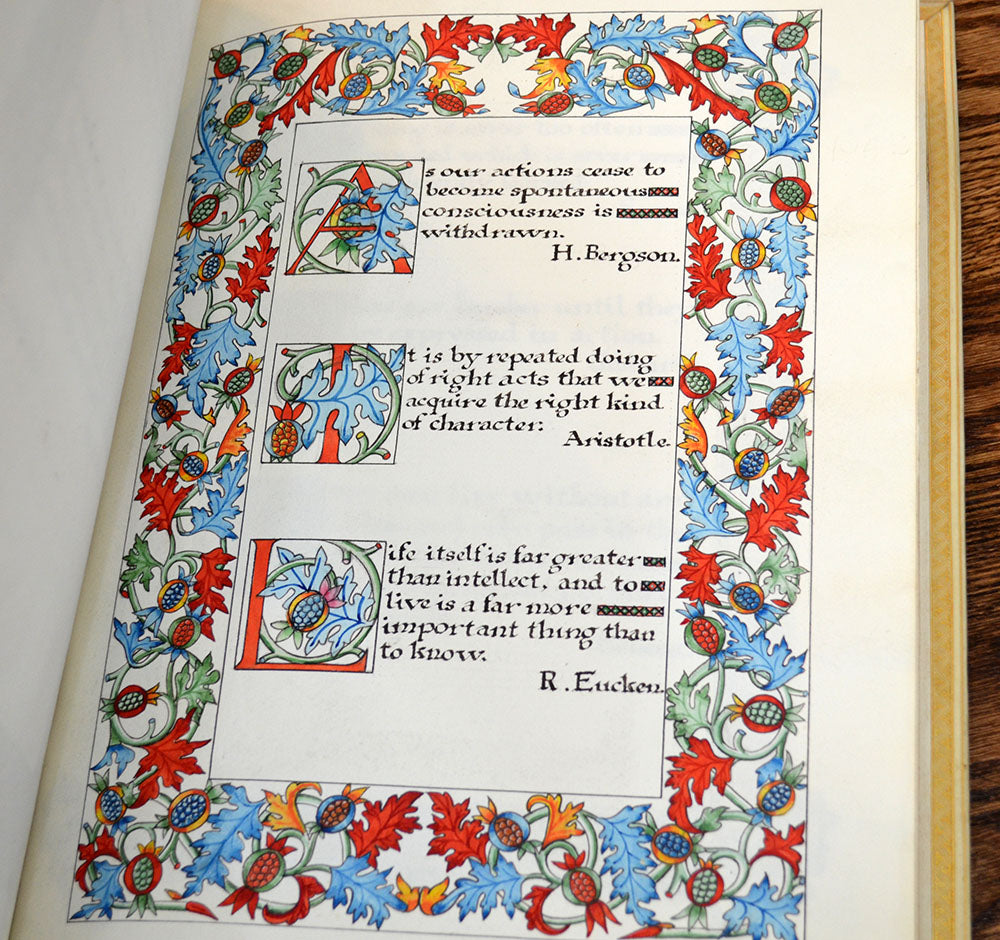 As our actions cease to
become spontaneous
consciousness is
withdrawn.
H. Bergson.
It is by repeated doing
of right acts that we
acquire the right kind
of character:
Aristotle.
Life itself is far greater
than intellect, and to
live is a far more
important thing than
to know.
R. Eucken.